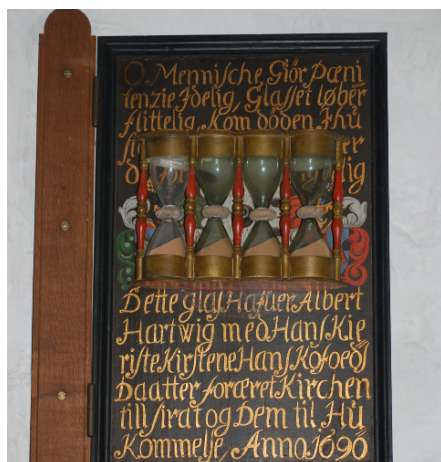 O Mennische, Giör Pæni
tenzie Idelig, Glasset løber
flittelig, Kom döden Ihu
Dette glas Hafuer Albert
Hartwig med Hans Kie
riste Kirstene Hans Kofoeds
Daatter foræret Kirchen
till sirat og Dem til Hu
Kommelse, Anno 1696